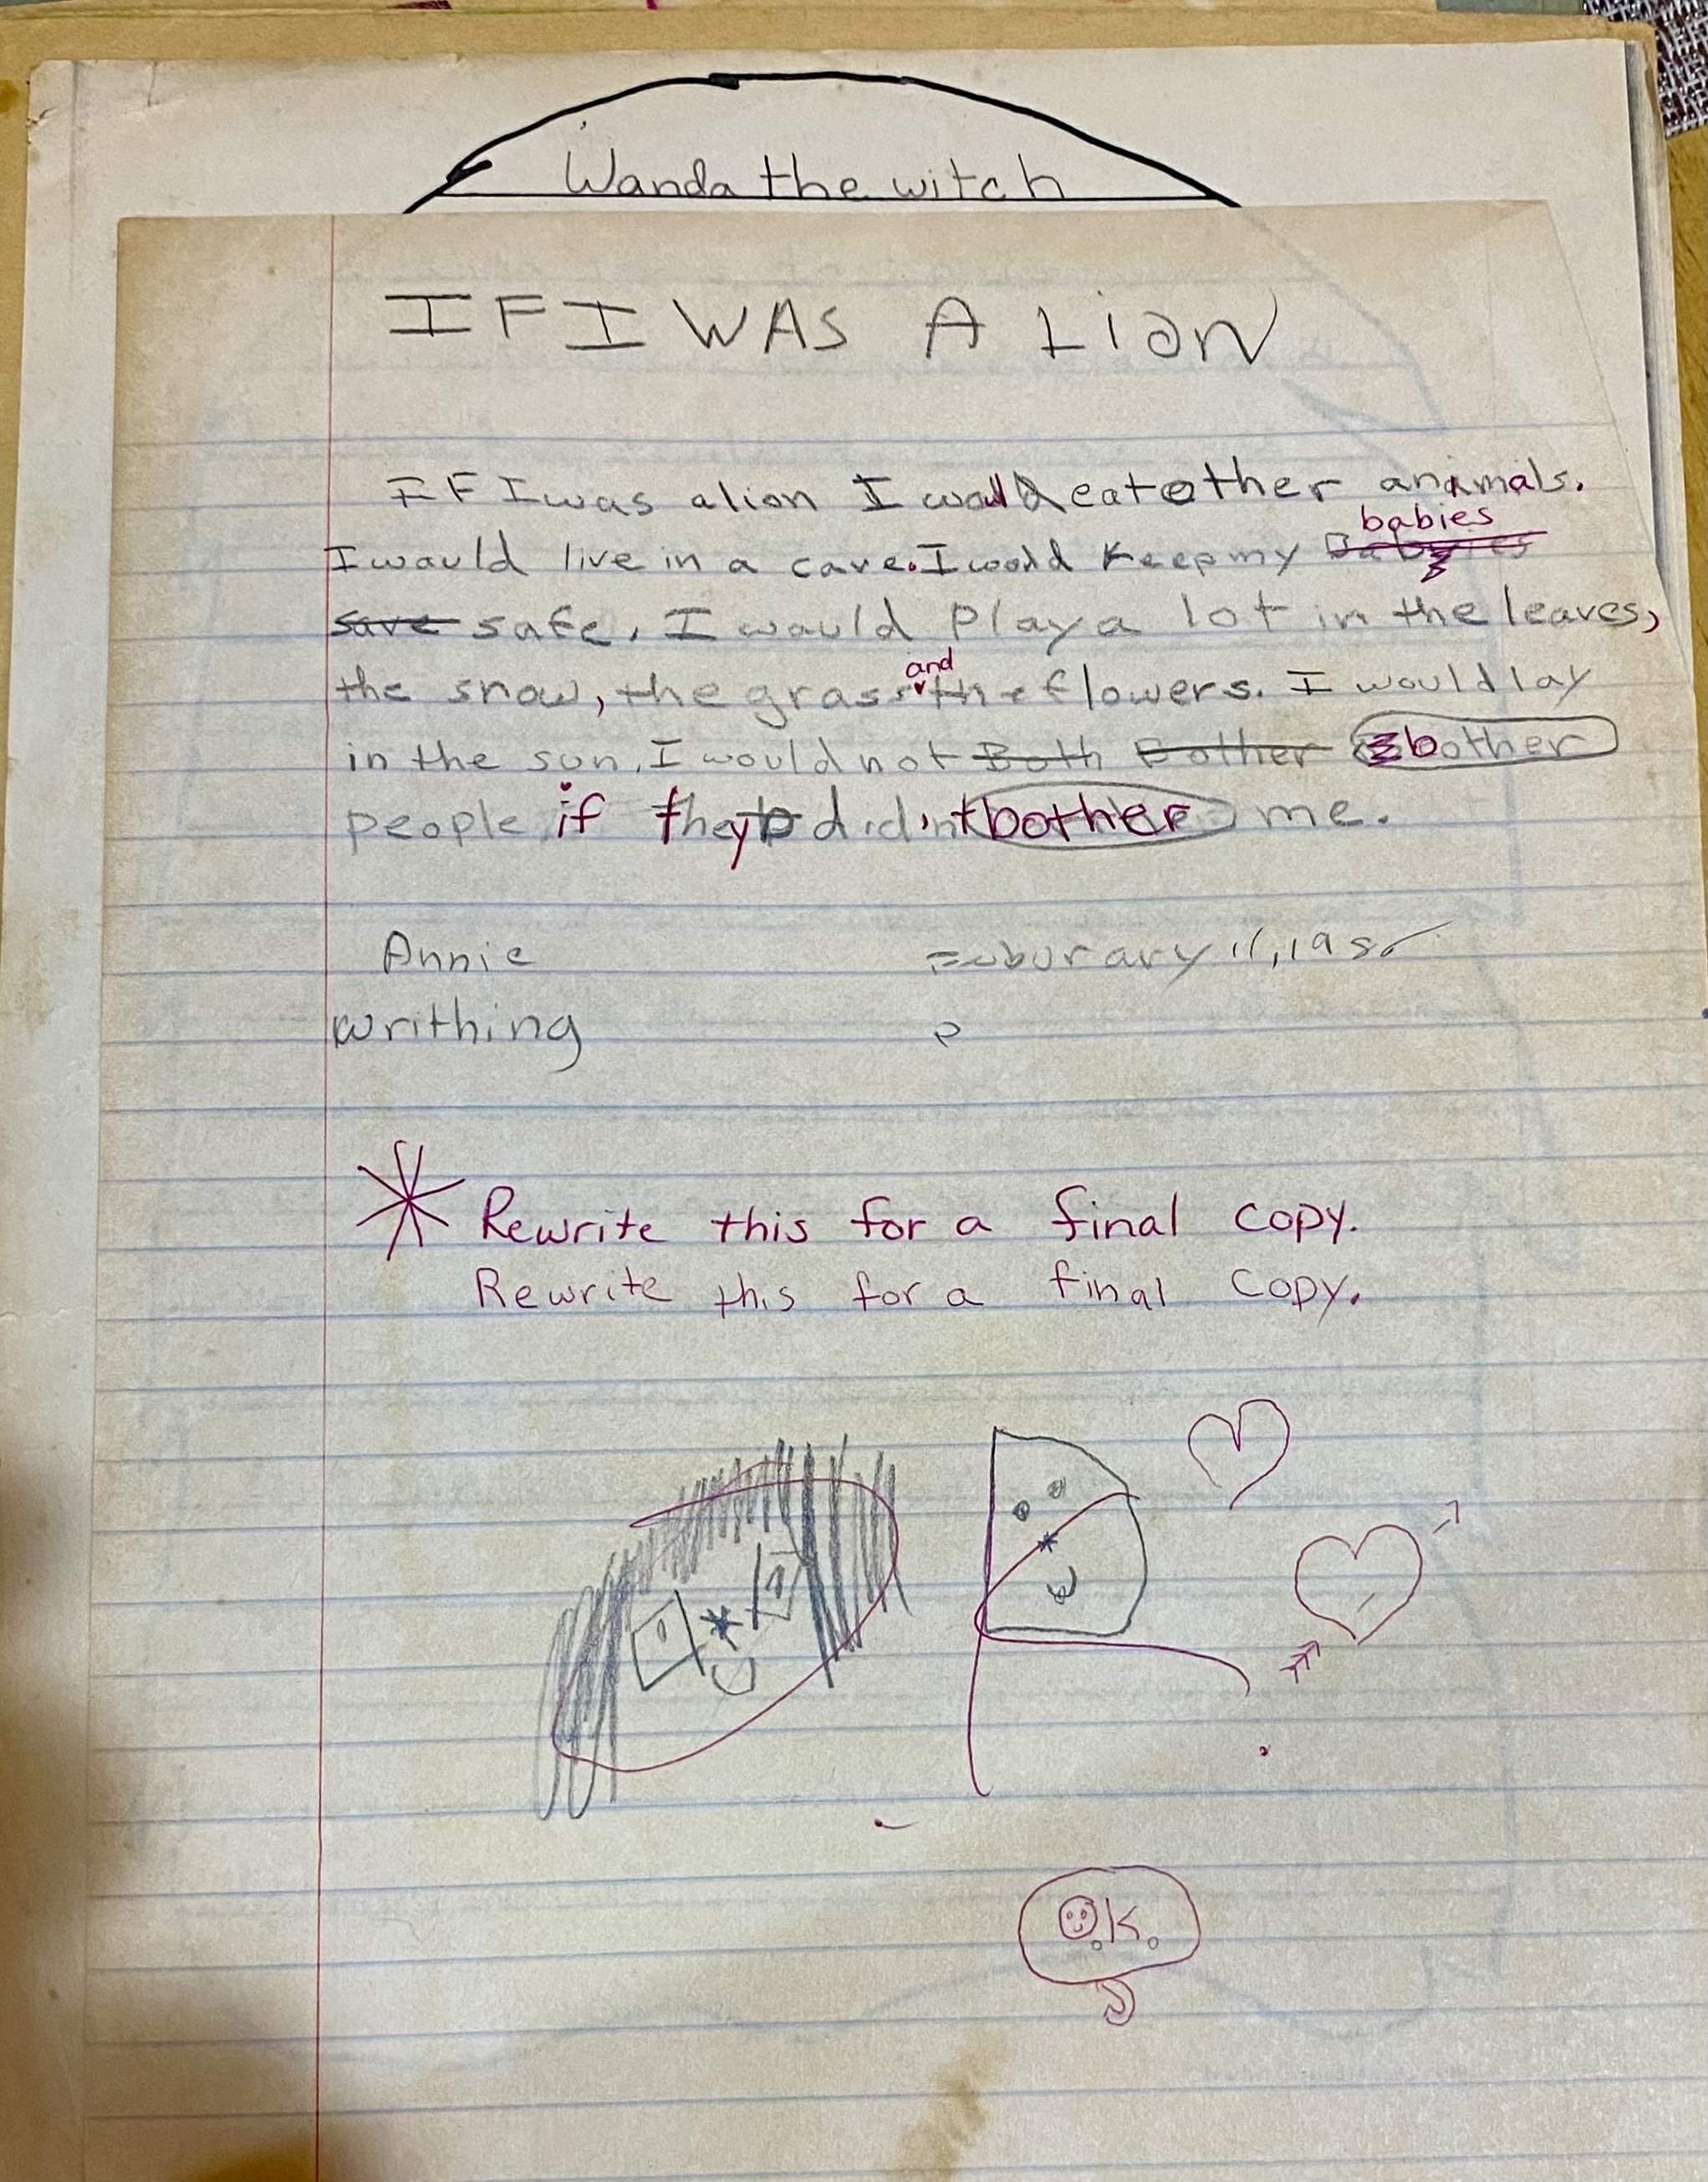 Wanda the witch
IF I WAS A LiON
IF I was a lion I would eat other animals.
babies
I would live in a cave. I would keep my Babyies
save safe. I would play a lot in the leaves,
and
the snow, the grass the flowers. I would lay
in the sun. I would not Both Bother bother
people if they didn't bother me.
Annie
writhing
Rewrite this for a final copy.
Rewrite this for a final copy.
O.K.